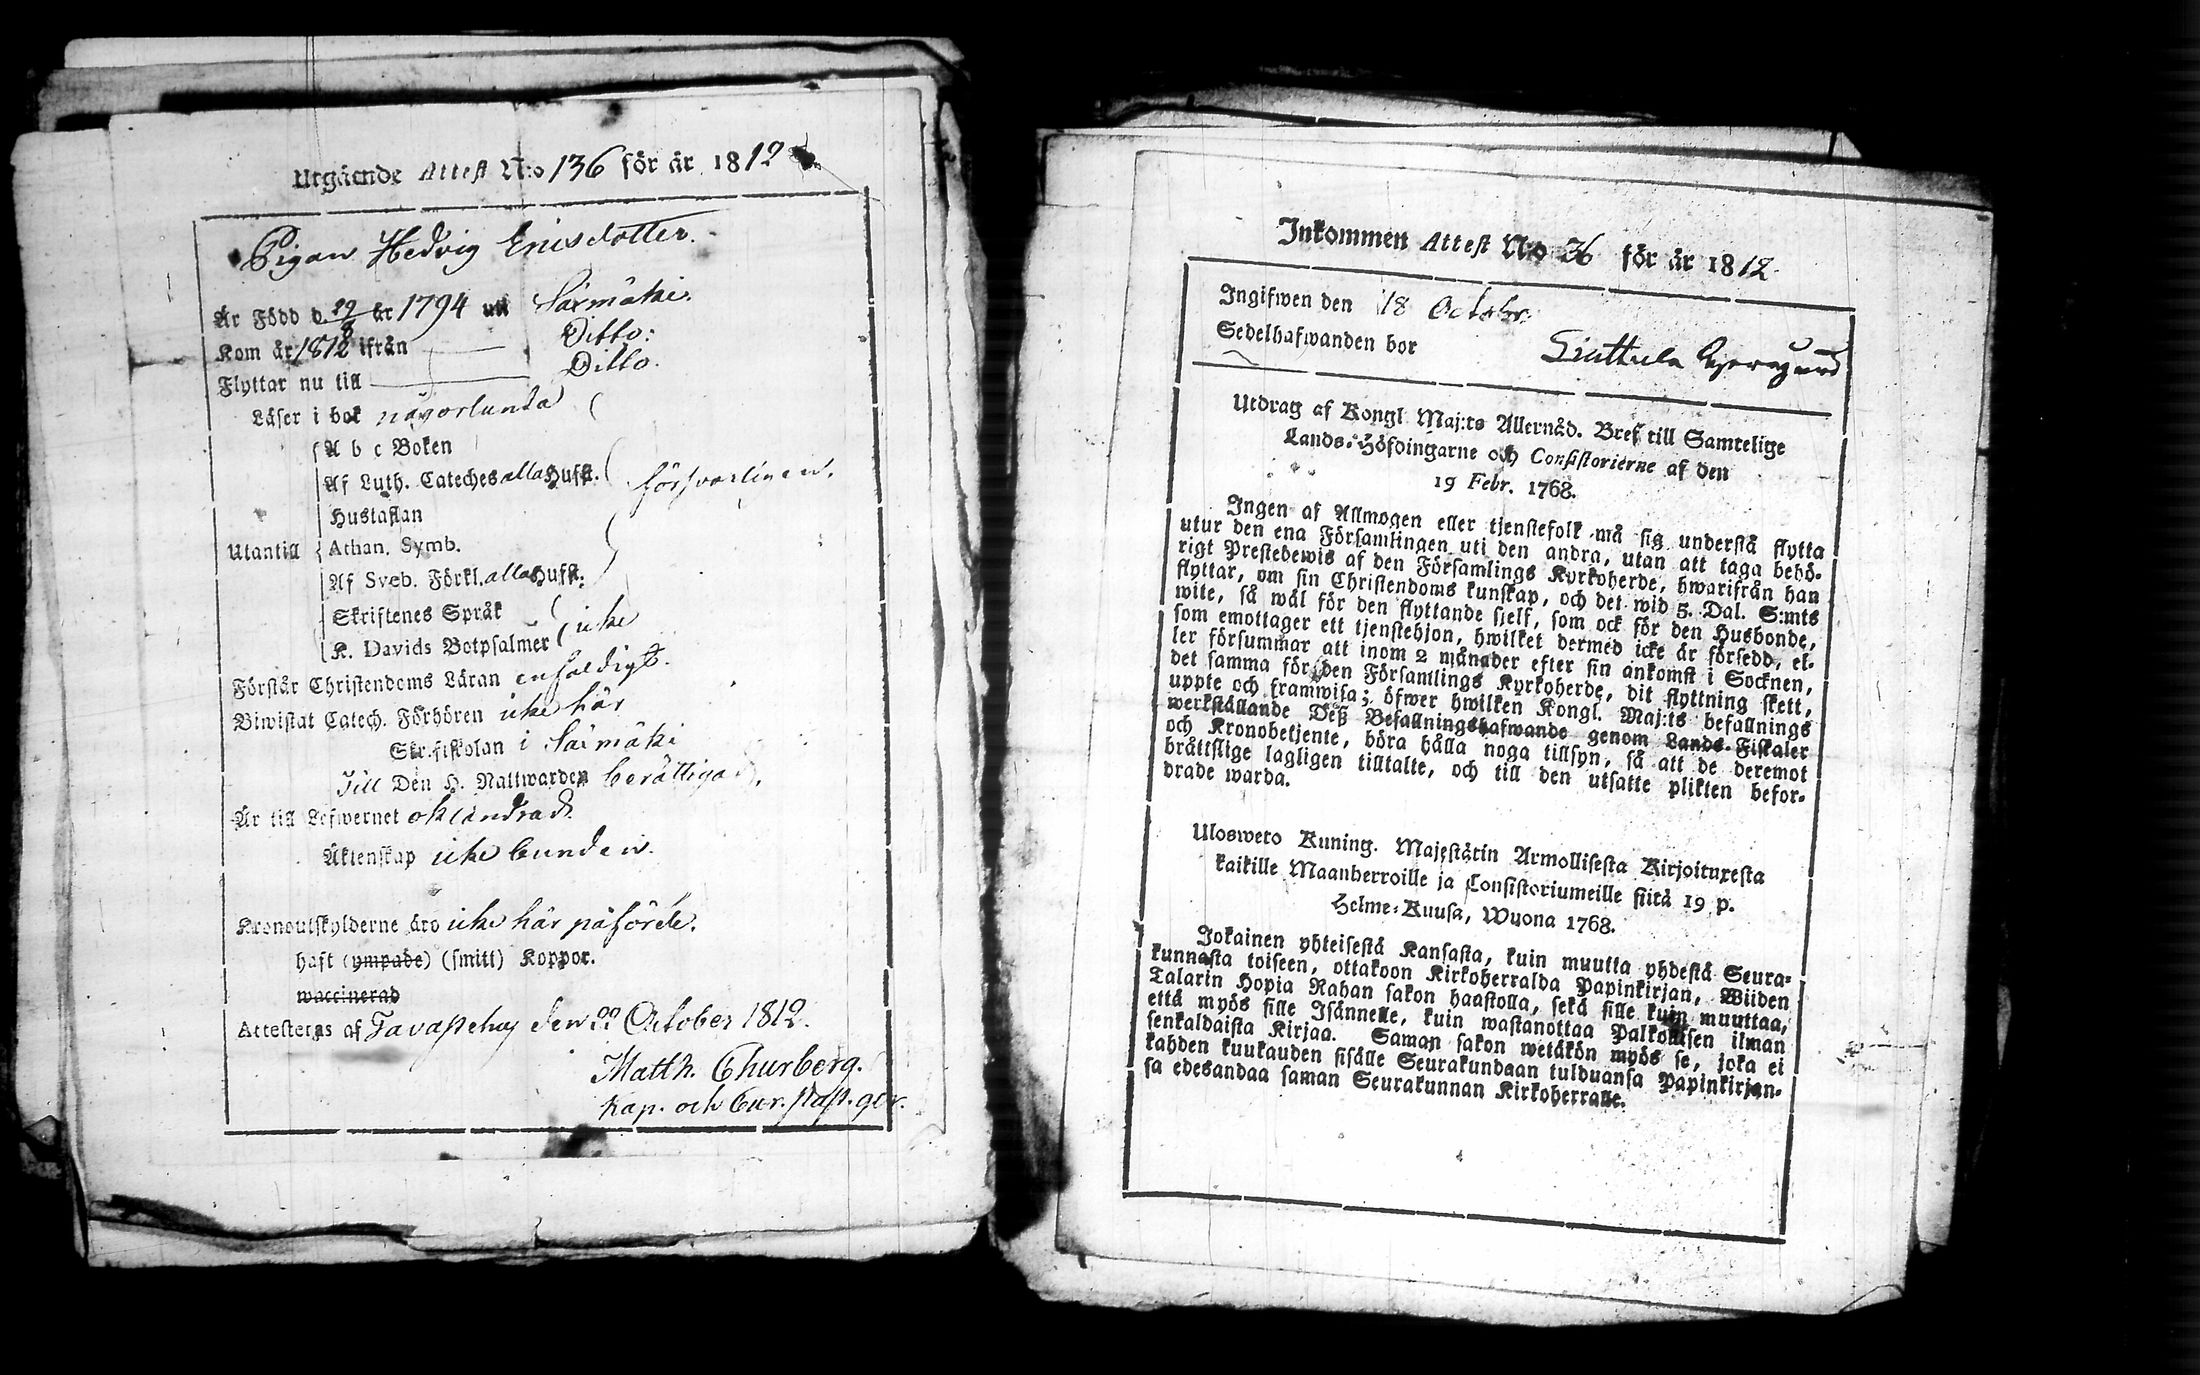 Utgående Attest N:o 136 för år 1812
Pigan Hedvig Ericsdotter.
Är Född d. 29/8 år 1794 uti Säxmäki.
Kom år 1812 ifrån Ditto:
Flyttar nu till Ditto.
Läser i bok någorlunda
A b c Boken
Af Luth. Cateches alla Hufst. försvarligen.
Hustaflan
Utantill Athan. Symb.
Af Sveb. Förkl. alla Hufst.
Skriftenes Språk
K. Davids Botpsalmer icke
Förstår Christendoms Läran enfaldigt.
Biwistat Catech. Förhören icke här
Skriftskolan i Säxmäki
Till Den H. Nattwarden berättigad.
Är till Lefwernet oklandrad.
Äktenskap icke bunden.
Kronoutskylderne äro icke här påförde.
haft (ympade) (smitt) Koppor.
waccinerad
Attesteras af Tavastehus den 22 October 1812.
Matth. Churberg.
Kap. och Cur. past. gör.
Inkommen Attest N:o 36 för år 1812
Ingifwen den 18 Octobr.
Sedelhafwanden bor
Utdrag af Kongl Maj:ts Allernåd. Bref till Samtelige
Lands-Höfdingarne och Consistorierne af den
19 Febr. 1768.
Ingen af Allmogen eller tjenstefolk må sig understå flytta
utur den ena Församlingen uti den andra, utan att taga behö-
rigt Prestebewis af den Församlings Kyrkoherde, hwarifrån han
flyttar, om sin Christendoms kunskap, och det wid 5. Dal. S:mts
wite, så wäl för den flyttande sjelf, som ock för den Husbonde,
som emottager ett tjenstehjon, hwilket dermed icke är försedd, el-
ler försummar att inom 2 månader efter sin ankomst i Socknen,
det samma för den Församlings Kyrkoherde, dit flyttning skett,
uppte och framwisa; öfwer hwilken Kongl. Maj:ts befallnings
werkställande Deß Befallningshafwande genom Lands-Fiskaler
och Kronobetjente, böra hålla noga tillsyn, så att de deremot
bråttslige lagligen tilltalte, och till den utsatte plikten befor-
drade warda.
Ulosweto Kuning. Majestätin Armollisesta Kirjoituxesta
kaikille Maanherroille ja Consistoriumeille siitä 19 p.
Helme-Kuusa, Wuona 1768.
Jokainen yhteisestä Kansasta, kuin muutta yhdestä Seura-
kunnasta toiseen, ottakoon Kirkoherralda Papinkirjan, Wiiden
Talarin Hopia Rahan sakon haastolla, sekä sille kuin muuttaa,
että myös sille Isännelle, kuin wastanottaa Palkollisen ilman
senkaldaista Kirjaa. Saman sakon wetäkön myös se, joka ei
kahden kuukauden sisälle Seurakundaan tulduansa Papinkirjan-
sa edesandaa saman Seurakunnan Kirkoherralle.